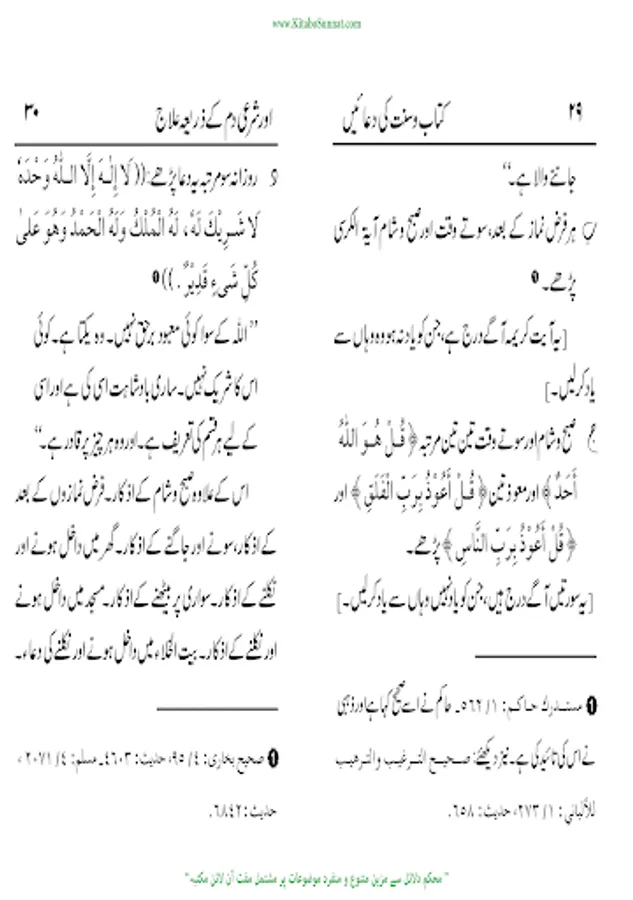 www.KitaboSunnat.com
کتاب وسنت کی دعائیں ۲۹
جاننے والا ہے۔“
ب ہر فرض نماز کے بعد، سوتے وقت اور صبح و شام آیۃ الکرسی
پڑھے۔ ❶
[یہ آیت کریمہ آگے درج ہے، جن کو یاد نہ ہو وہ وہاں سے
یاد کرلیں۔]
ج صبح و شام اور سوتے وقت تین تین مرتبہ ﴿قُلْ هُوَ اللّٰهُ
أَحَدٌ﴾ اور معوذتین ﴿قُلْ أَعُوْذُ بِرَبِّ الْفَلَقِ﴾ اور
﴿قُلْ أَعُوْذُ بِرَبِّ النَّاسِ﴾ پڑھے۔
[یہ سورتیں آگے درج ہیں، جن کو یاد نہیں وہاں سے یاد کرلیں۔]
❶ مستدرك حاكم: ۱/ ۵۶۲۔ حاکم نے اسے صحیح کہا ہے اور ذہبی
نے اس کی تائید کی ہے۔ نیز دیکھئے: صحيح الترغيب والترهيب
للألباني: ۱/ ۲۷۳، حدیث: ۶۵۸.
اور شرعی دم کے ذریعہ علاج ۳۰
و روزانہ سو مرتبہ یہ دعا پڑھے: ((لَا إِلٰهَ إِلَّا اللّٰهُ وَحْدَهٗ
لَا شَرِيْكَ لَهٗ، لَهُ الْمُلْكُ وَلَهُ الْحَمْدُ وَهُوَ عَلىٰ
كُلِّ شَىْءٍ قَدِيْرٌ.)) ❶
”اللہ کے سوا کوئی معبود برحق نہیں۔ وہ یکتا ہے۔ کوئی
اس کا شریک نہیں۔ ساری بادشاہت اسی کی ہے اور اسی
کے لیے ہر قسم کی تعریف ہے۔ اور وہ ہر چیز پر قادر ہے۔“
اس کے علاوہ صبح و شام کے اذکار۔ فرض نمازوں کے بعد
کے اذکار، سونے اور جاگنے کے اذکار۔ گھر میں داخل ہونے اور
نکلنے کے اذکار۔ سواری پر بیٹھنے کے اذکار۔ مسجد میں داخل ہونے
اور نکلنے کے اذکار۔ بیت الخلاء میں داخل ہونے اور نکلنے کی دعاء۔
❶ صحیح بخاری: ۴/ ۹۵، حدیث: ۴۶۰۳۔ مسلم: ۴/ ۲۰۷۱،
حدیث: ۶۸۴۲.
”محکم دلائل سے مزین متنوع و منفرد موضوعات پر مشتمل مفت آن لائن مکتبہ“